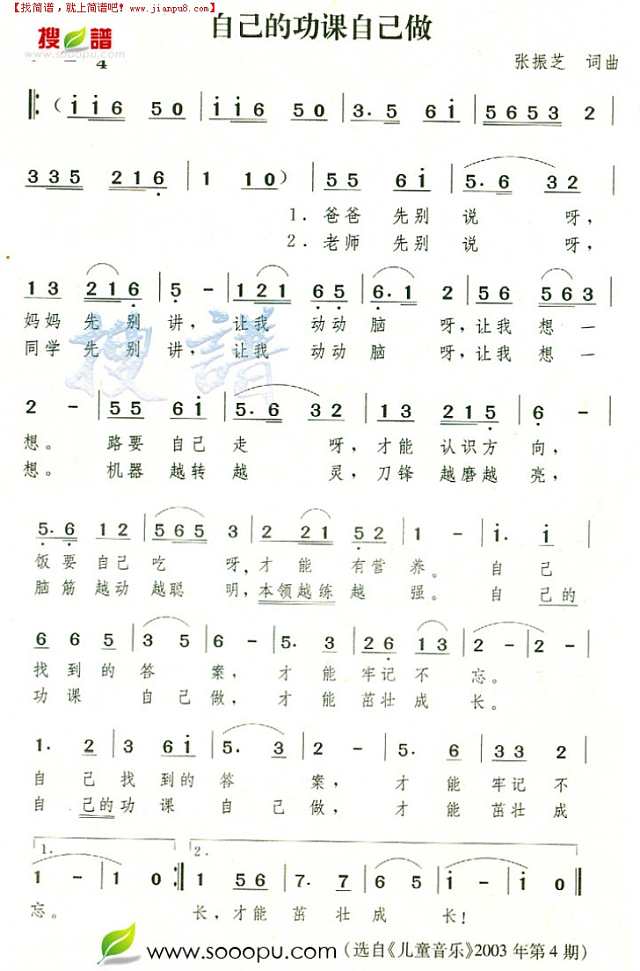 【找简谱，就上简谱吧! www.jianpu8.com】
搜譜
www.sooopu.com
自己的功课自己做
4
张振芝 词曲
‖:( i i 6 5 0 | i i 6 5 0 | 3. 5 6 i | 5 6 5 3 2 |
3 3 5 2 1 6 | 1 1 0 ) | 5 5 6 i | 5. 6 3 2 |
1. 爸爸 先别 说 呀，
2. 老师 先别 说 呀，
1 3 2 1 6 | 5 - | 1 2 1 6 5 | 6. 1 2 | 5 6 5 6 3 |
妈妈 先 别 讲，让我 动动 脑 呀，让我 想 一
同学 先 别 讲，让我 动动 脑 呀，让我 想 一
2 - | 5 5 6 i | 5. 6 3 2 | 1 3 2 2 1 5 | 6 - |
想。 路要 自己 走 呀，才能 认识方 向，
想。 机器 越转 越 灵，刀锋 越磨越 亮，
5. 6 1 2 | 5 6 5 3 | 2 2 1 5 2 | 1 - | i. i |
饭要 自己 吃 呀，才能 有营 养。 自 己
脑筋 越动 越聪 明，本领越练 越 强。 自 己的
6 6 5 | 3 5 | 6 - | 5. 3 | 2 6 1 3 | 2 - | 2 - |
找到的 答 案， 才 能 牢记 不 忘。
功 课 自 己 做， 才 能 茁壮 成 长。
1. 2 | 3 6 i | 5. 3 | 2 - | 5. 6 | 3 3 2 |
自 己 找到的 答 案， 才 能 牢记 不
自 己的 功 课 自 己 做， 才 能 茁壮 成
1. 2.
1 - | 1 0 :‖ 1 5 6 | 7. 7 | 6 5 | i - | i 0 ‖
忘。 长，才能 茁 壮 成 长!
www.sooopu.com (选自《儿童音乐》2003 年第 4 期)
搜譜